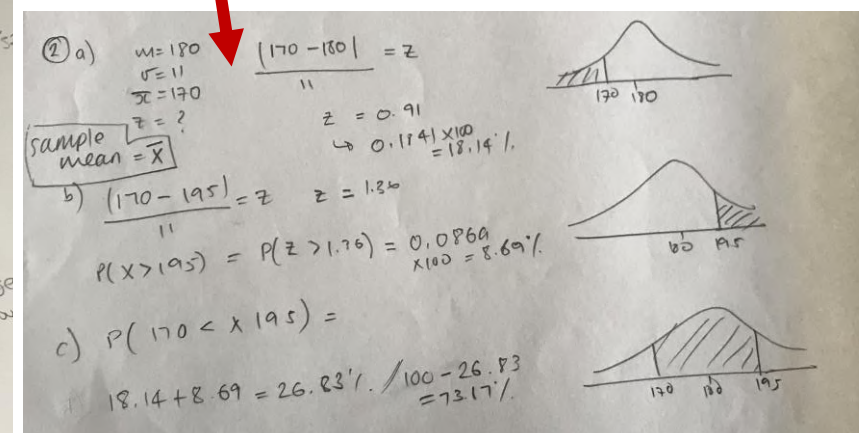 ② a)
m = 180
σ = 11
x̄ = 170
z = ?
|170 - 180| = z
11
z = 0.91
↳ 0.1841 × 100
= 18.14 %
170 180
sample
mean = x̄
b) (170 - 195) = z z = 1.36
11
P(X > 195) = P(Z > 1.36) = 0.0869
× 100 = 8.69 %
180 195
c) P( 170 < X 195) =
18.14 + 8.69 = 26.83 % / 100 - 26.83
= 73.17 %
170 180 195